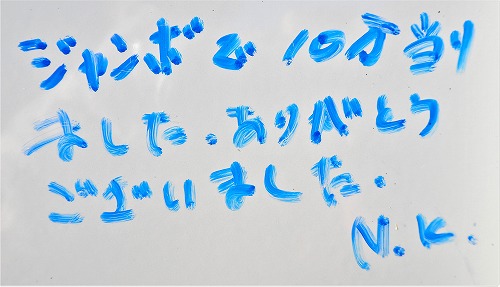 ジャンボで10万当り
ました.ありがとう
ございました.
N.K.